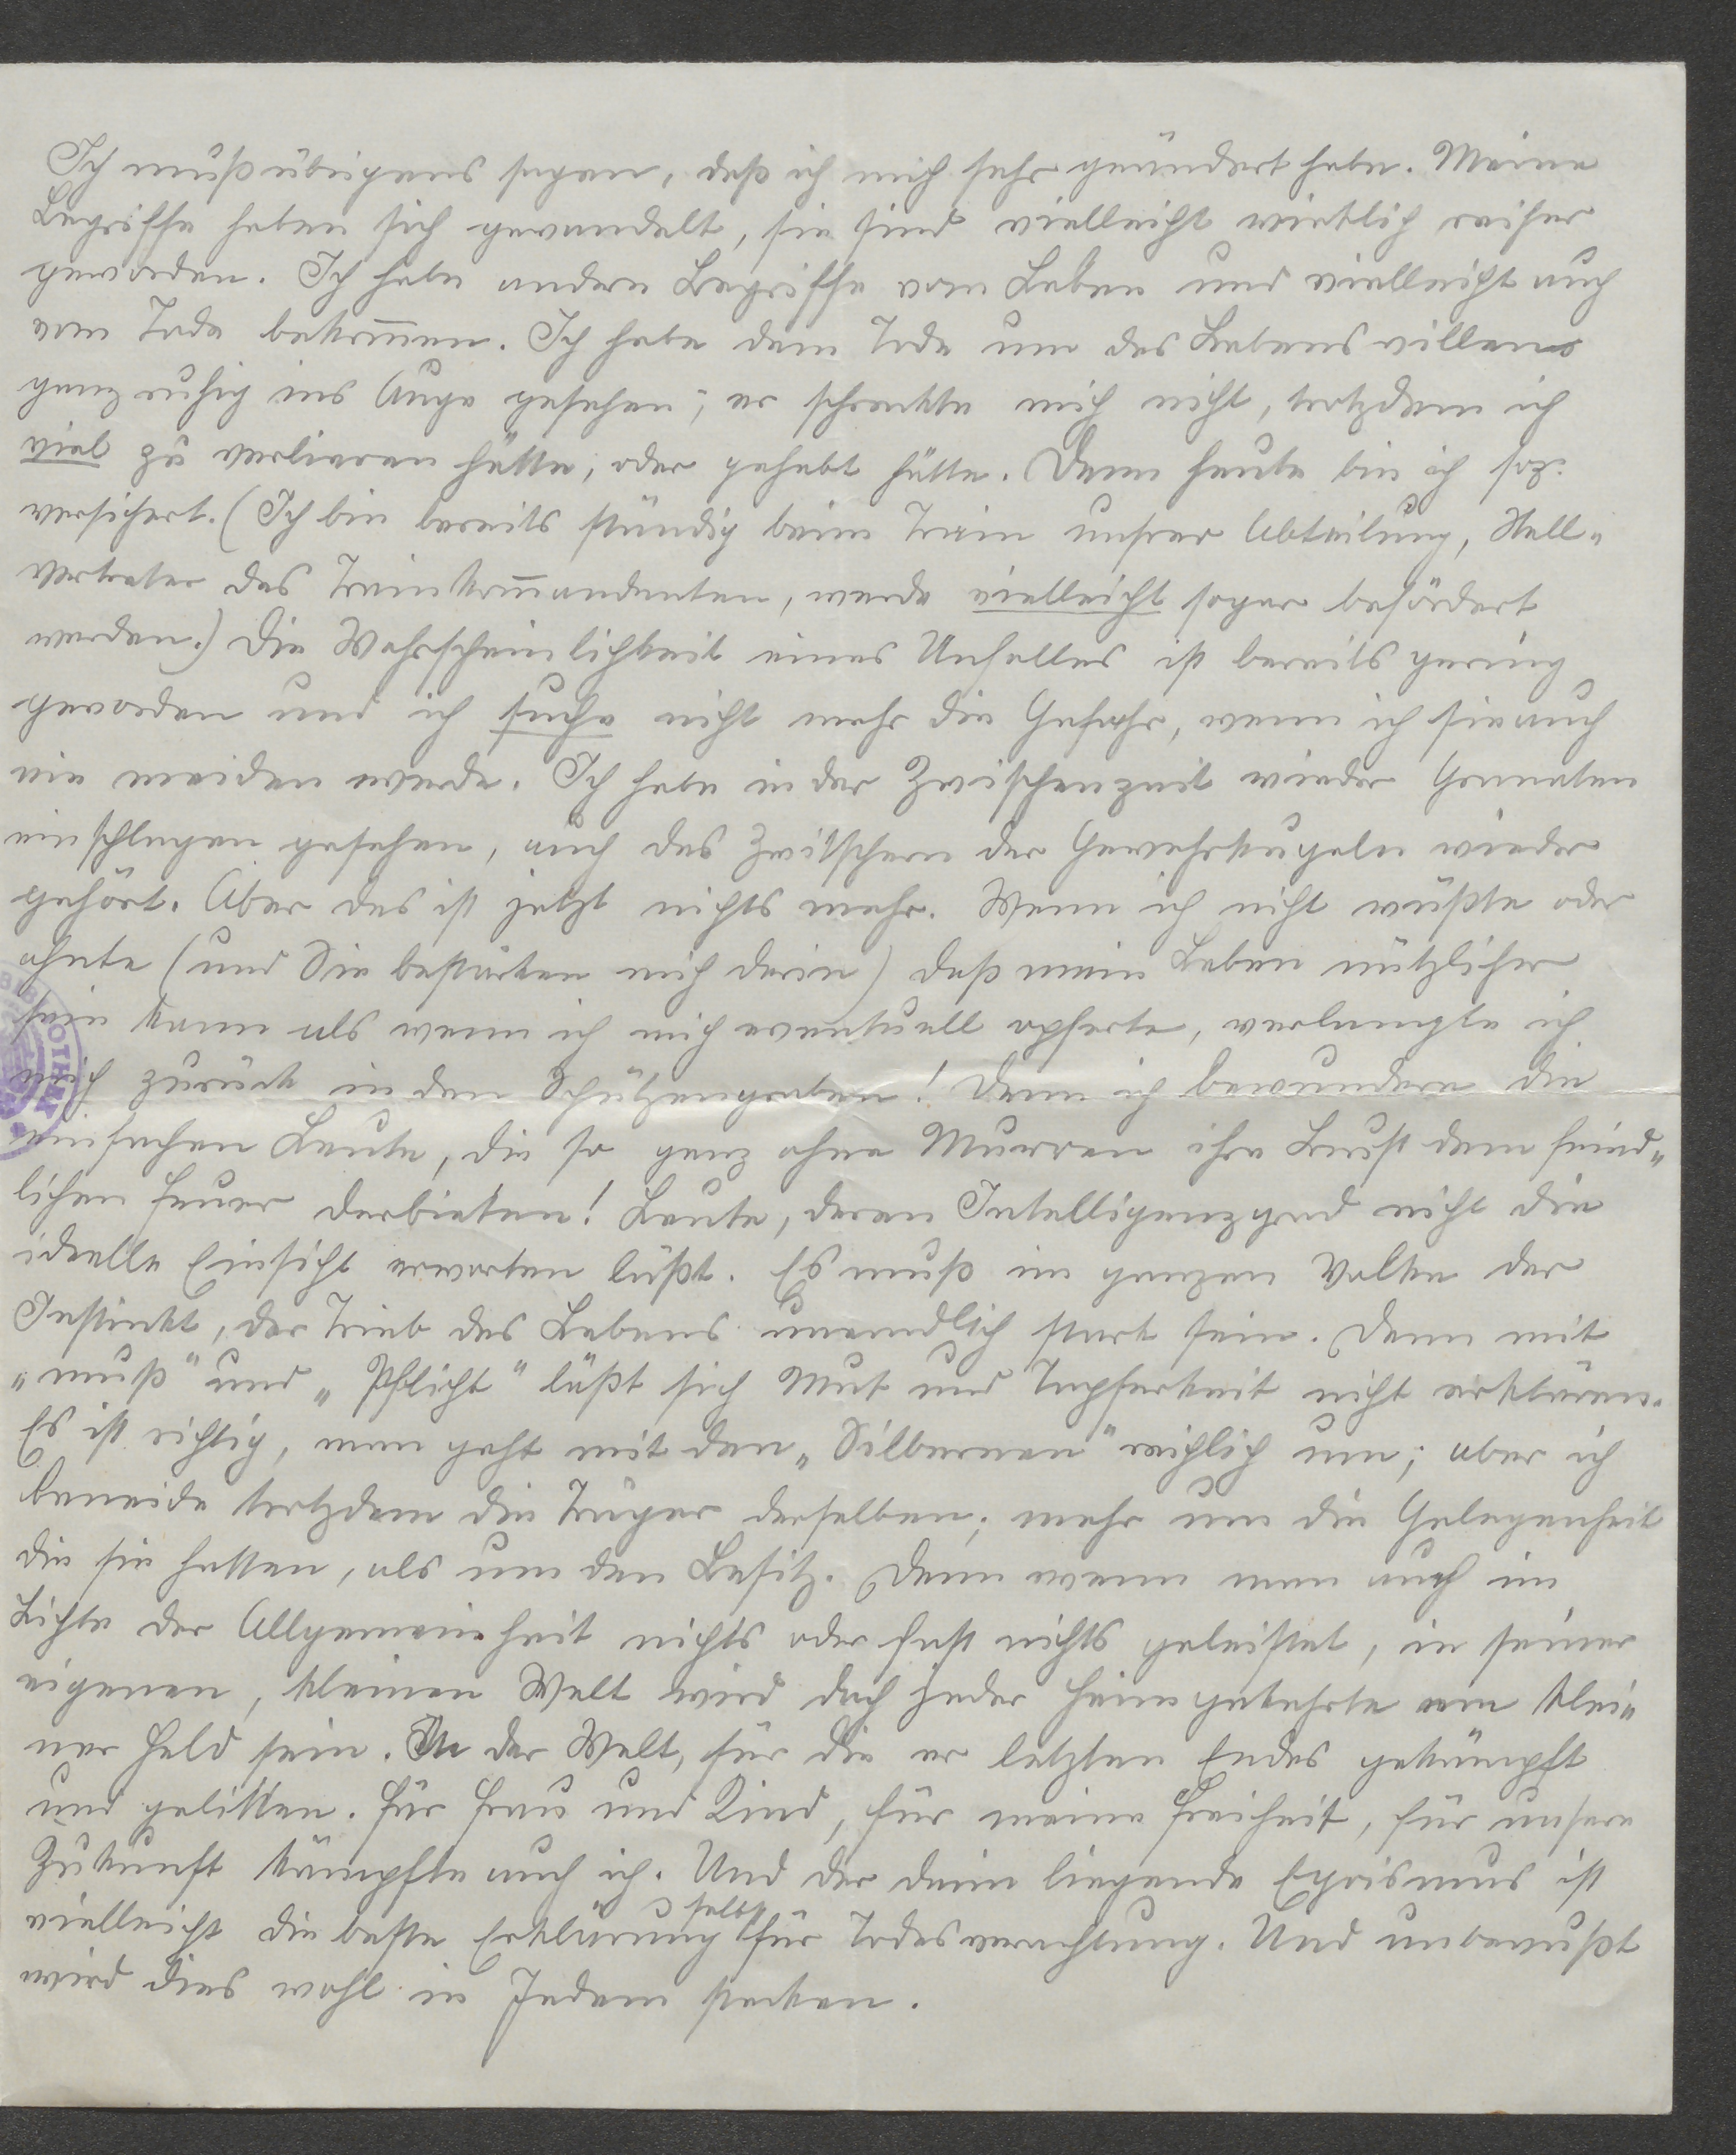 Ich muß übrigens sagen, daß ich mich sehr geändert habe. Meine
Begriffe haben sich gewandelt, sie sind vielleicht wirklich reifer
geworden. Ich habe andere Begriffe vom Leben und vielleicht auch
vom Tode bekom̅en. Ich habe dem Tode um des Lebens willen
ganz ruhig ins Auge gesehen; er schreckte mich nicht, trotzdem ich
viel zu verlieren hätte, oder gehabt hätte. Denn heute bin ich soz.
versichert. (Ich bin bereits ständig beim Train unsrer Abteilung, Stell„
vertreter des Trainkom̅andanten, werde vielleicht sogar befördert
werden.) Die Wahrscheinlichkeit eines Unfalles ist bereits gering
geworden und ich suche nicht mehr die Gefahr, wenn ich sie auch
nie meiden werde. Ich habe in der Zwischenzeit wieder Granaten
einschlagen gesehen, auch das Zwitschern der Gewehrkugeln wieder
gehört. Aber das ist jetzt nichts mehr. Wenn ich nicht wüßte oder
ahnte (und Sie bestärken mich darin) daß mein Leben nützlicher
sein kann als wenn ich mich eventuell opferte, verlangte ich
mich zurück in den Schützengraben! Denn ich bewundere die
einfachen Leute, die so ganz ohne Murren ihre Brust dem feind„
lichen Feuer darbieten! Leute, deren Intelligenzgrad nicht die
ideelle Einsicht erwarten läßt. Es muß im ganzen Volke der
Instinkt, der Trieb des Lebens unendlich stark sein. Denn mit
„muß" und „Pflicht" läßt sich Mut und Tapferkeit nicht erklären.
Es ist richtig, man geht mit den „Silbernen" reichlich um; aber ich
beneide trotzdem die Träger derselben; mehr um die Gelegenheit
die sie hatten, als um den Besitz. Denn wenn man auch im
Lichte der Allgemeinheit nichts oder fast nichts geleistet, in seiner
eigenen, kleinen Welt wird doch jeder Heimgekehrte ein klei„
ner Held sein. In der Welt, für die er letzten Endes gekämpft
und gelitten. Für Frau und Kind, für meine Freiheit, für unsere
Zukunft kämpfte auch ich. Und der darin liegende Egoismus ist
vielleicht die beste Erklärung selbst für Todesverachtung. Und unbewußt
wird dies wohl in Jedem stecken.
BIBLIOTHEK